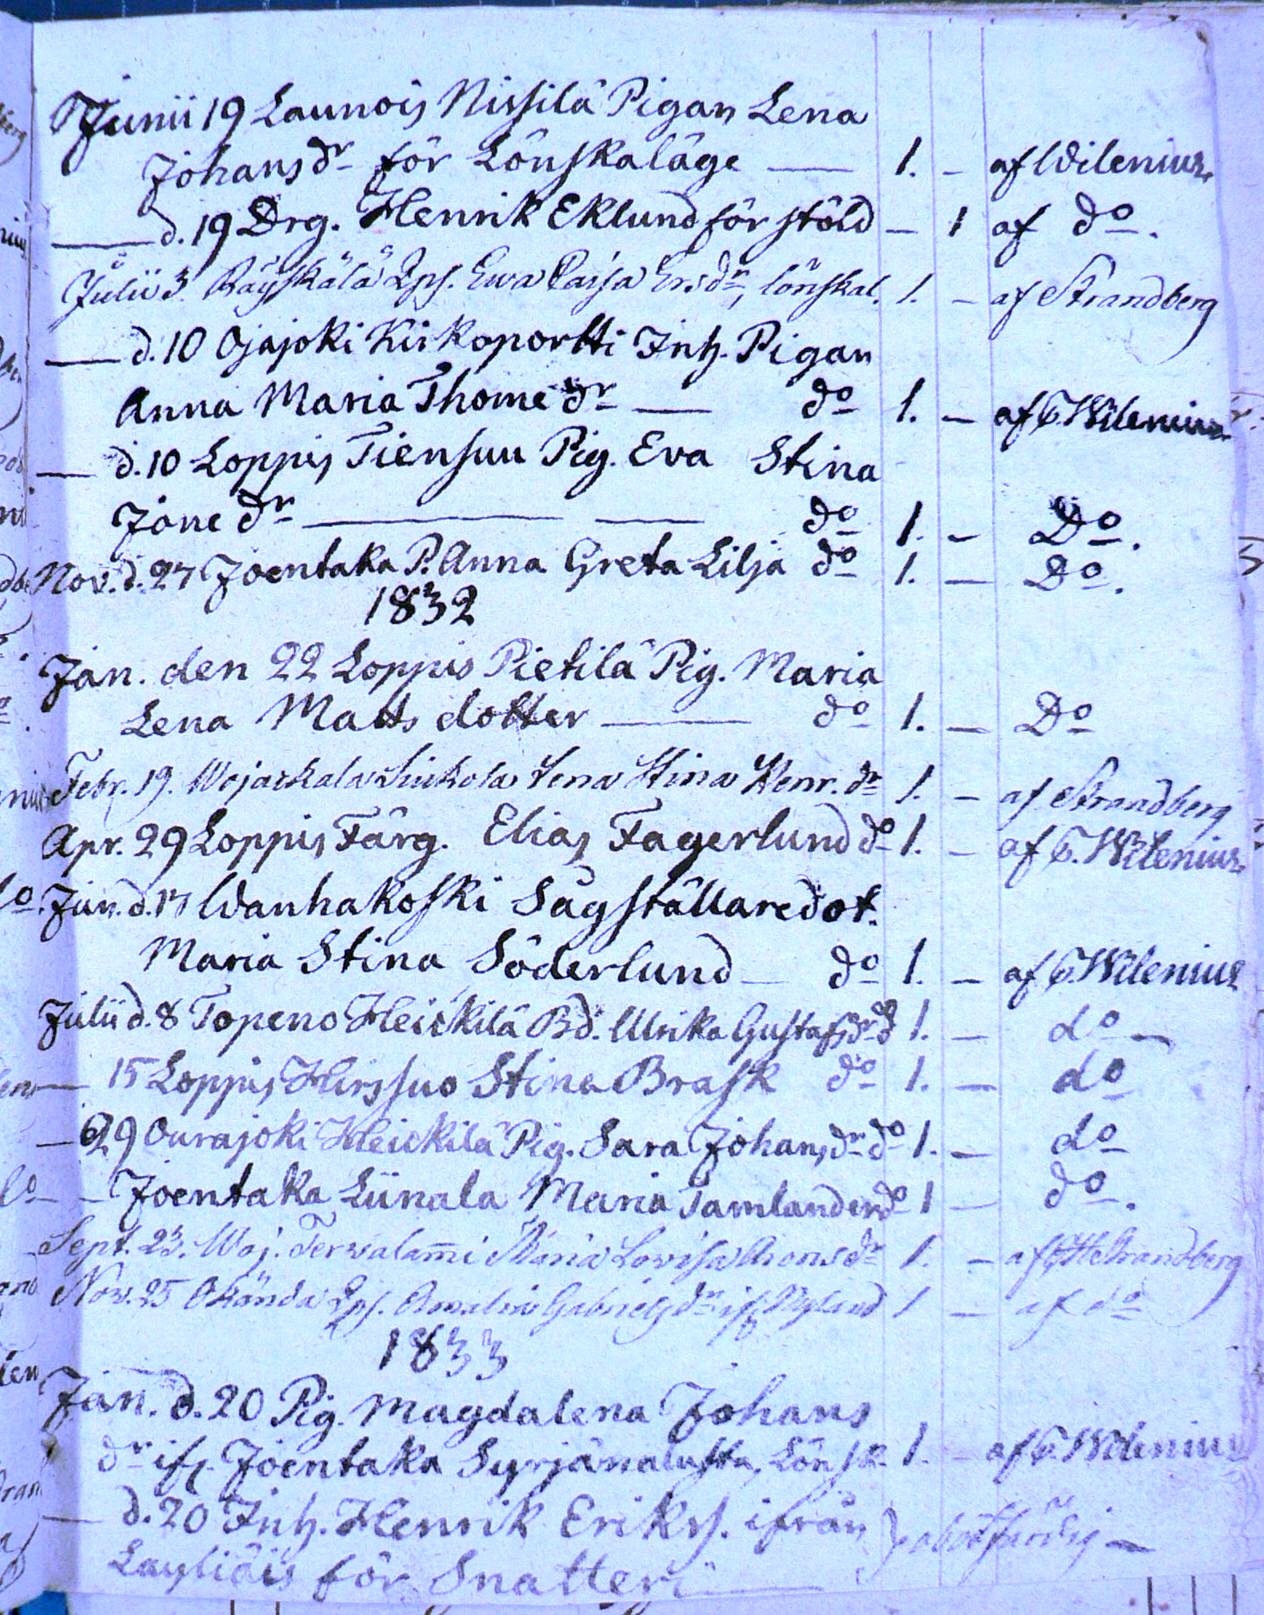 Junii 19 Launois Nissilä Pigan Lena
Johans dr för Lönskaläge — 1. — af Wilenius
— d. 19 Drg. Henrik Eklund för stöld — 1 af do.
Julii 3. Räyskälä Lps. Ewa Caisa Ersdr, lönskal. 1. — af Strandberg
— d. 10 Ojajoki Kirkoportti Inh. Pigan
Anna Maria Thome dr — do 1. — af C. Wilenius
— d. 10 Loppis Tiensuu Pig. Eva Stina
Jone dr — — do 1. — Do.
Nov. d. 27 Joentaka P. Anna Greta Lilja do 1. — Do.
1832
Jan. den 22 Loppis Pietilä Pig. Maria
Lena Mats dotter — do 1. — Do
Febr. 19. Wojaskala Lena Stina Henr. dr 1. — af Strandberg
Apr. 29 Loppis Färg. Elias Fagerlund do 1. — af C. Wilenius
Jun. d. 17 Wanhakoski Sågställare dot.
Maria Stina Söderlund — do 1. — af C. Wilenius
Julii d. 8 Topeno Heickilä Bd. Ulrika Gustafs dr do 1. — do —
— 15 Loppis Hirssuo Stina Brask do 1. — do
— 29 Ourajoki Heickilä Pig. Sara Johans dr do 1. — do
— Joentaka Liinala Maria Tamlander do 1 — do.
Sept. 23. Woj. Terwalam̄i Maria Lovisa Arons dr 1. — af Strandberg
Nov. 25 Lps. Amalia Gabriels dr if. Nyland 1 — af do
1833
Jan. d. 20 Pig. Magdalena Johans
dr ifr. Joentaka Syrjänalusta, Lönsk. 1. — af C. Wilenius
— d. 20 Inh. Henrik Eriks. ifrån
Layliäis för Snatteri —